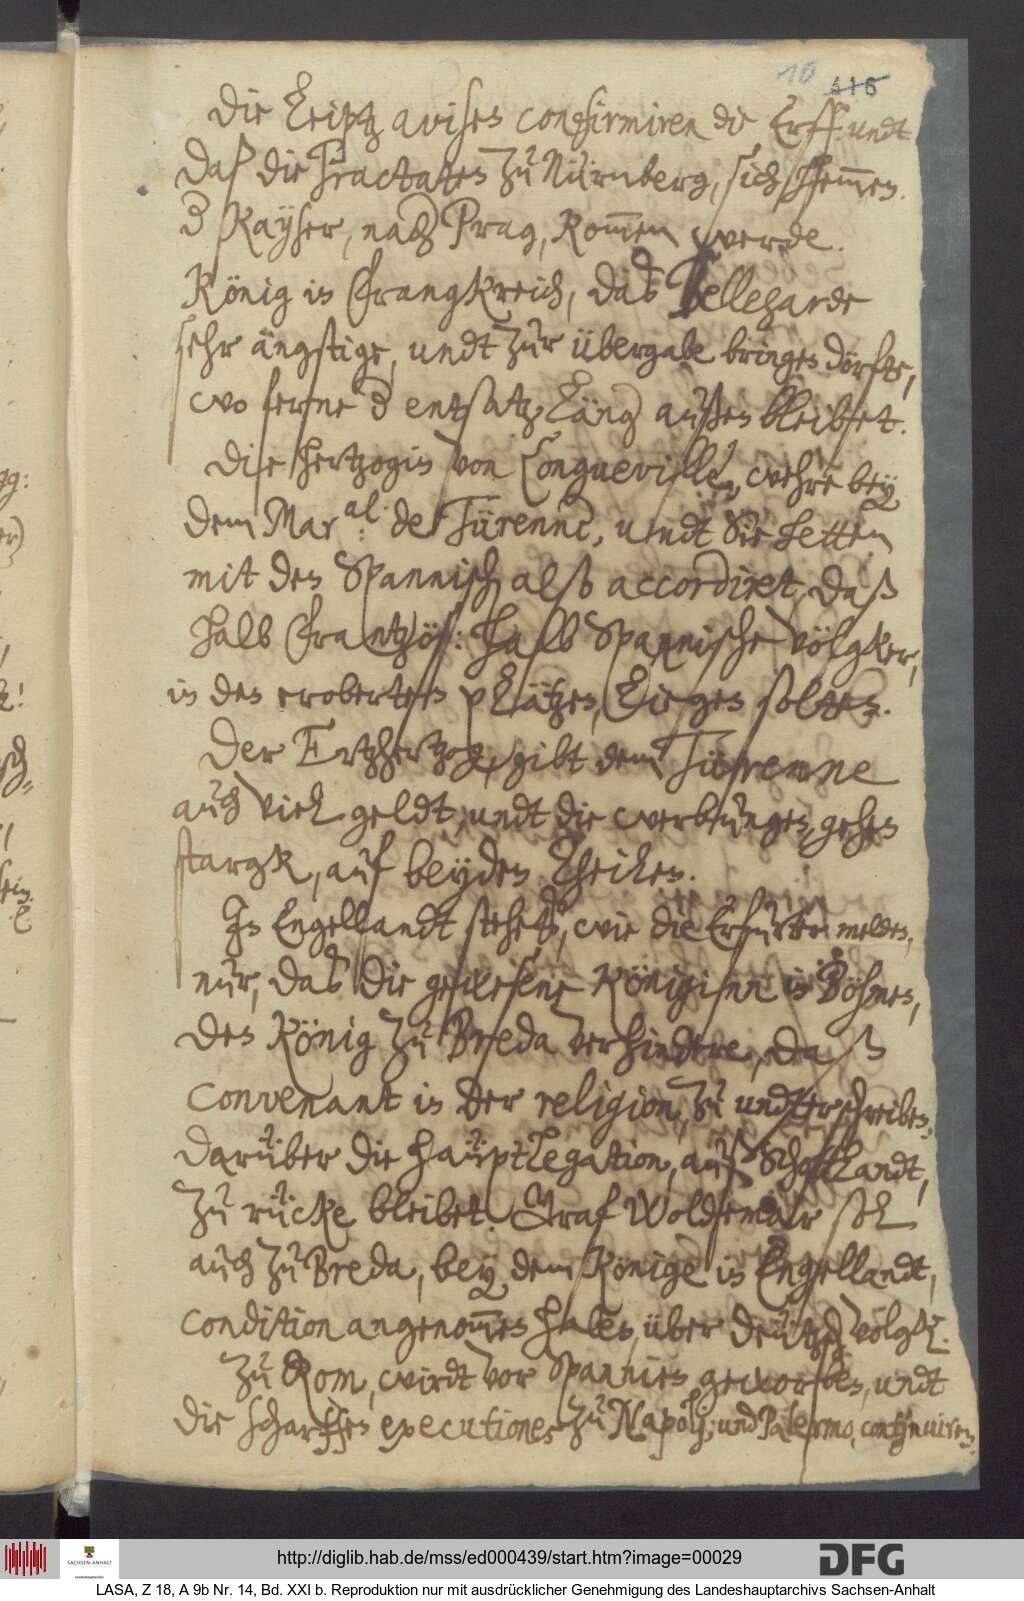 10 416
Die Leiptz avisen confirmiren die Erff: undt
daß die Tractaten zu Nürnberg, sich hemmen.
d Kayser, nach Prag, kommen werde.
König in Frangkreich, das Bellegarde
sehr ängstige, undt zur übergabe bringen dörfte,
wo ferne d entsatz, läng außen bleibet.
Die Hertzogin von Longueville, wehre bey
dem Mar:al: de Türenne, undt Sie hetten
mit den Spannisch: also accordiret, daß
halb Frantzös: halb Spannische völgker,
in den eroberten plätzen, liegen solten.
Der Ertzhertzog, gibt dem Türenne
auch viel geldt, undt die werbungen, gehen
stargk, auf beyden theilen.
In Engellandt stehets, wie die Erfurter melden,
nur, das die gewesene Königinn in Böhmen,
den König zu Breda verhindere, daß
convenant in der religion, zu undterschreiben,
darüber die hauptlegation, auß Schottlandt,
zu rücke bleibet. Graf Woldemar sol
auch zu Breda, bey dem Könige in Engellandt,
condition angenommen haben, über deutzsch völgk.
Zu Rom, wirdt vor Spannien geworben, undt
die scharffen executiones zu Napolj, und Palermo, continuiren.
gg:
er)
http://diglib.hab.de/mss/ed000439/start.htm?image=00029
SACHSEN-ANHALT
DFG
LASA, Z 18, A 9b Nr. 14, Bd. XXI b. Reproduktion nur mit ausdrücklicher Genehmigung des Landeshauptarchivs Sachsen-Anhalt